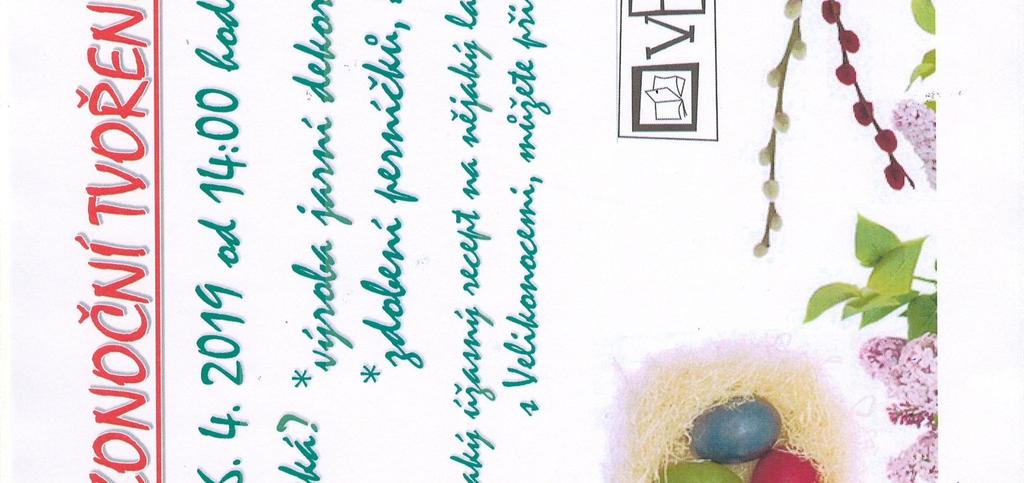 KONOČNÍ TVOŘEN
6. 4. 2019 od 14:00 hod
ká? * výroba jarní dekor
* zdobení perníčků,
aký úžasný recept na nějaký la
s Velikonocemi, můžete při